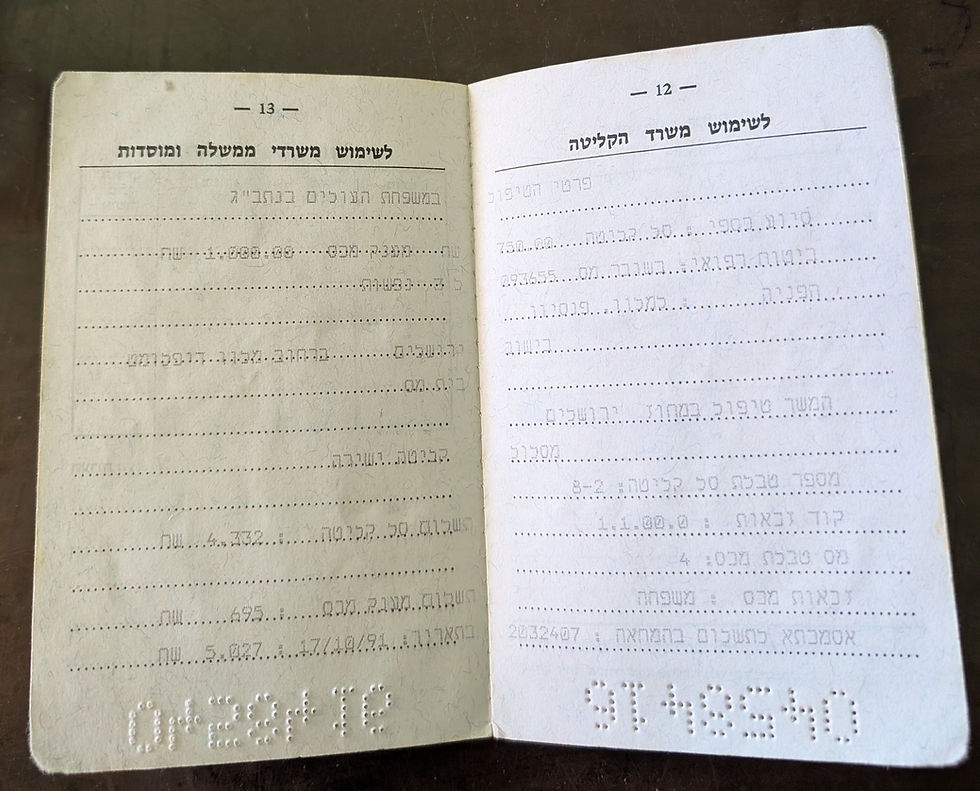 — 12 —
לשימוש משרד הקליטה
פרטי הטיפול
סיוע כספי : סל קליטה 750.00
ביטוח רפואי: בשובר מס 093655
הפניה : למלון, פנסיון
בישוב
המשך טיפול במחוז ירושלים
מסלול
מספר טבלת סל קליטה: 8-2
קוד זכאות : 1.1.00.0
מס טבלת מכס: 4
זכאות מכס : משפחה
אסמכתא לתשלום בהמחאה : 2032407
— 13 —
לשימוש משרדי ממשלה ומוסדות
במשפחת העולים בנתב"ג
שח מענק מכס 1,000.00 שח
נפשות
ירושלים ברחוב מלון דיפלומט
בית מס
קליטה ישירה
תשלום סל קליטה : 4,332 שח
תשלום מענק מכס : 695 שח
בתאריך: 17/10/91 : 5,027 שח